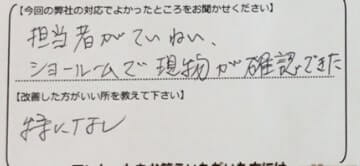 【今回の弊社の対応でよかったところをお聞かせください】
担当者がていねい、
ショールームで現物が確認できた
【改善した方がいい所を教えて下さい】
特になし